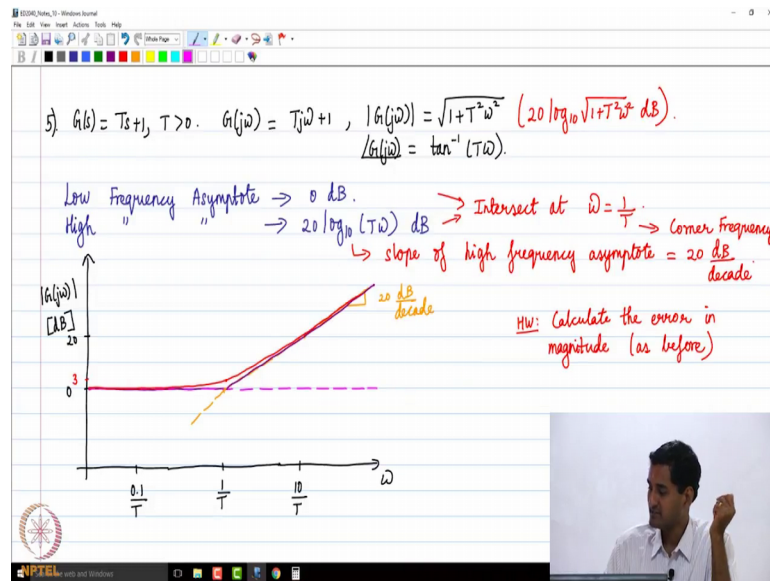 ED2040_Notes_10 - Windows Journal
File Edit View Insert Actions Tools Help
Whole Page
5). G(s) = Ts+1, T>0. G(jω) = Tjω+1, |G(jω)| = √1+T²ω² (20 log₁₀ √1+T²ω² dB).
∠G(jω) = tan⁻¹(Tω).
Low Frequency Asymptote → 0 dB.
High " " → 20 log₁₀ (Tω) dB
→ Intersect at ω = 1/T.
→ Corner Frequency
↳ slope of high frequency asymptote = 20 dB/decade.
|G(jω)|
[dB]
20
3
0
20 dB/decade
HW: Calculate the error in
magnitude (as before)
0.1/T
1/T
10/T
ω
NPTEL
the web and Windows